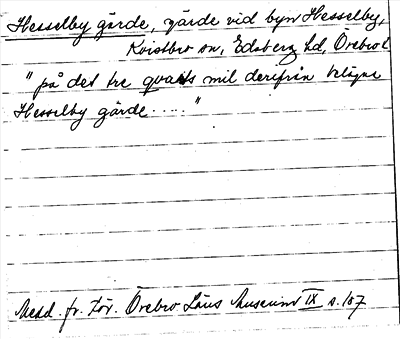 Hesselby gärde, gärde vid byn Hesselby,
Kvistbro sn, Edsberg hd, Örebro l
"på det tre qvarts mil derifrån belägna
Hesselby gärde....."
Medd. fr. För. Örebro Läns Museum IX s. 107